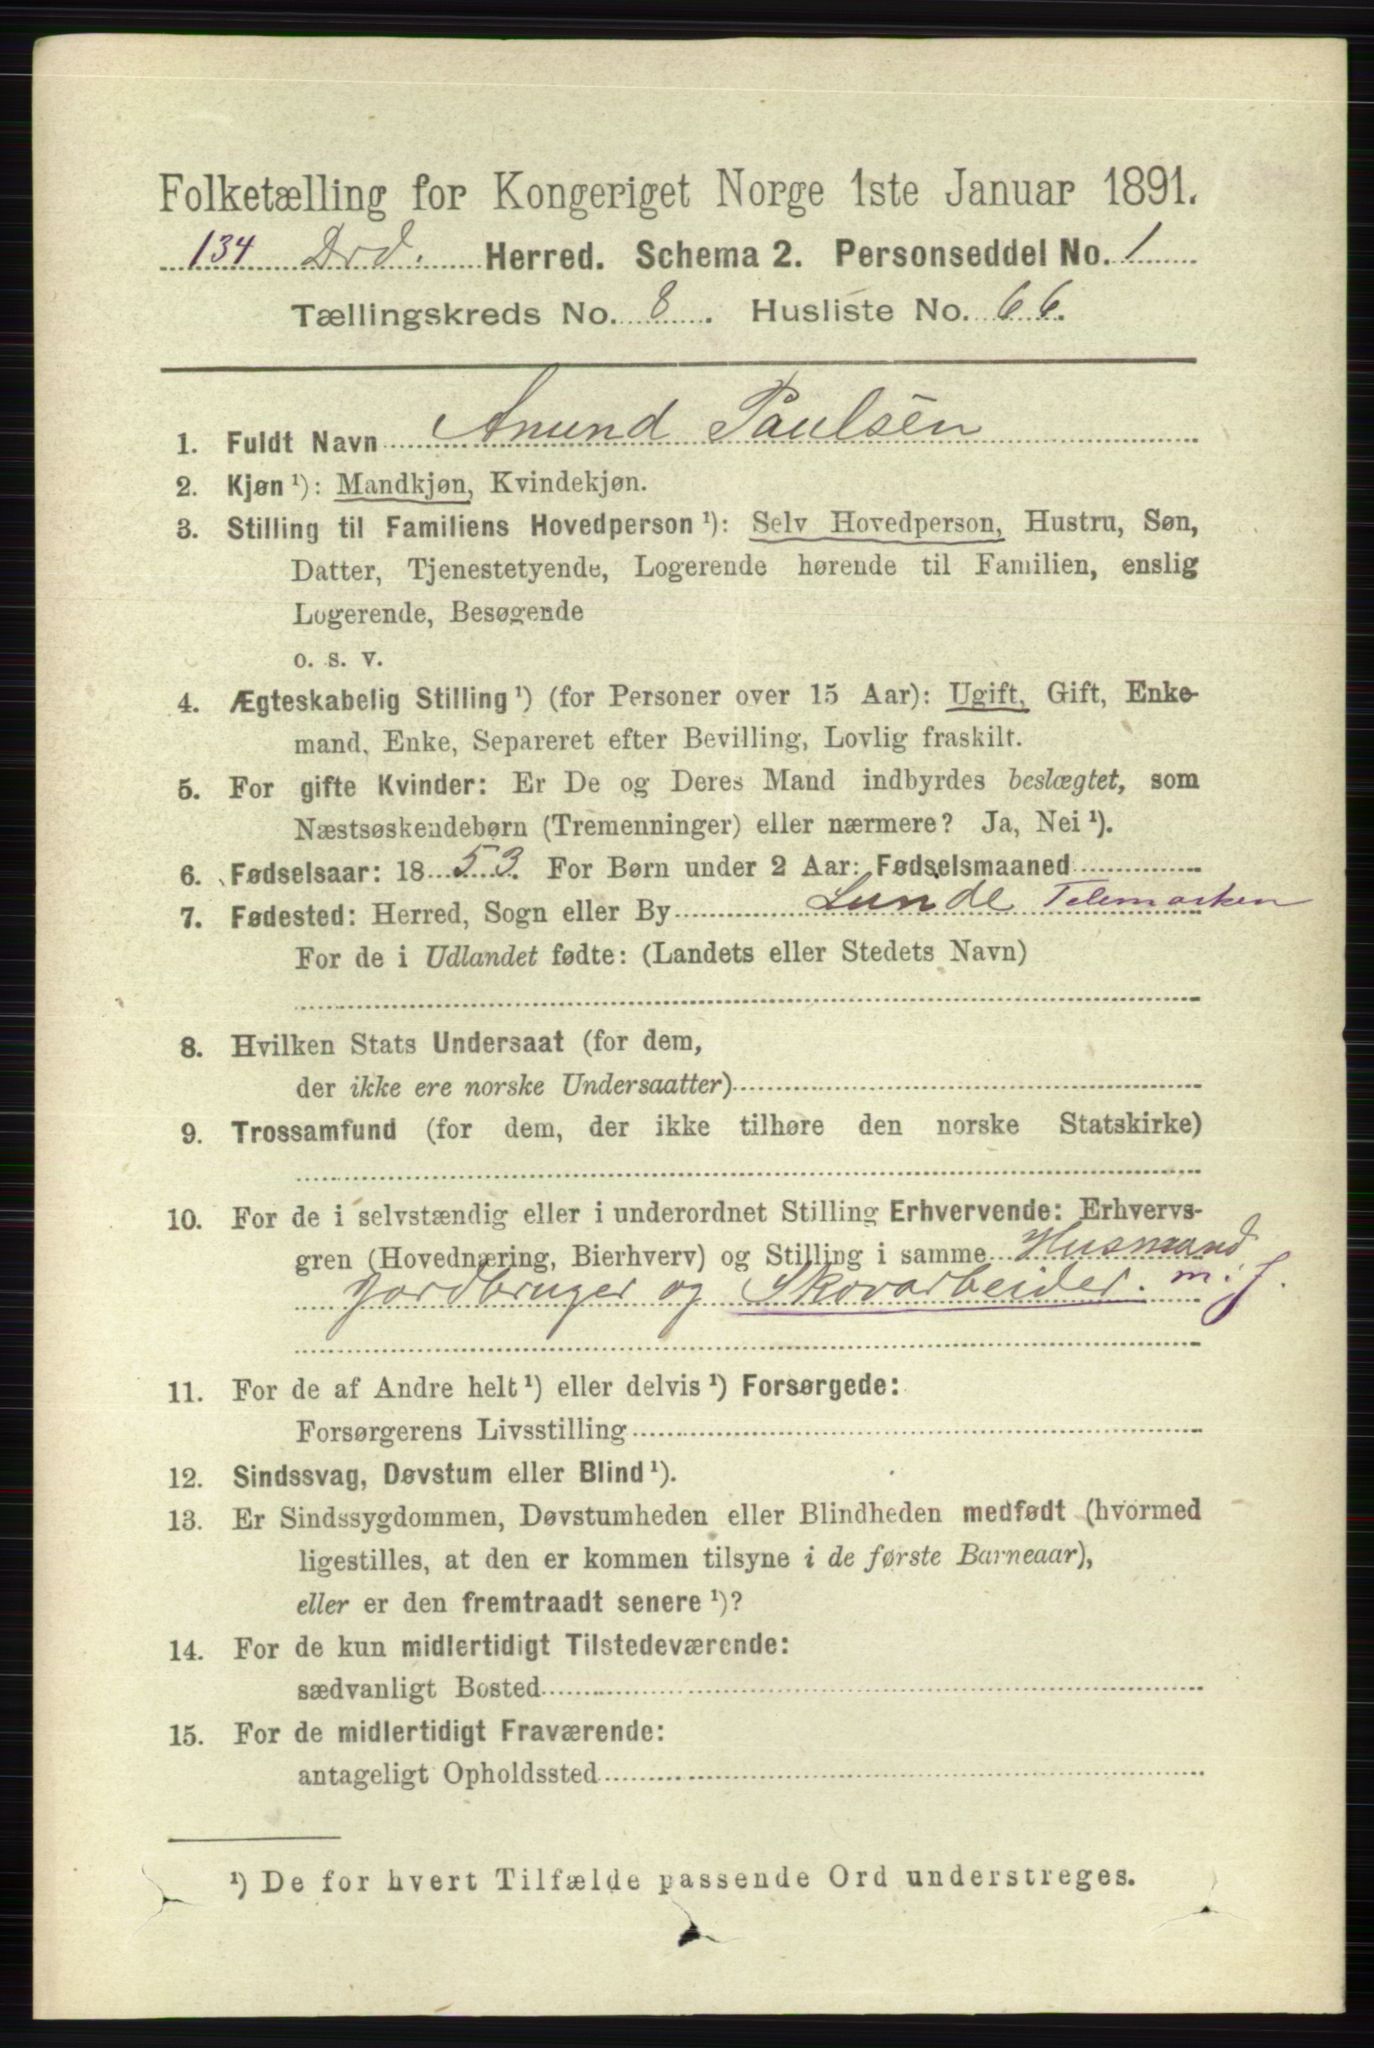 Folketælling for Kongeriget Norge 1ste Januar 1891.
134 Drd. Herred. Schema 2. Personseddel No. 1
Tællingskreds No. 8. Husliste No. 66.
1. Fuldt Navn Anund Paulsen
2. Kjøn ¹): Mandkjøn, Kvindekjøn.
3. Stilling til Familiens Hovedperson ¹): Selv Hovedperson, Hustru, Søn,
Datter, Tjenestetyende, Logerende hørende til Familien, enslig
Logerende, Besøgende
o. s. v.
4. Ægteskabelig Stilling ¹) (for Personer over 15 Aar): Ugift, Gift, Enke-
mand, Enke, Separeret efter Bevilling, Lovlig fraskilt.
5. For gifte Kvinder: Er De og Deres Mand indbyrdes beslægtet, som
Næstsøskendebørn (Tremenninger) eller nærmere? Ja, Nei ¹).
6. Fødselsaar: 1853. For Børn under 2 Aar: Fødselsmaaned
7. Fødested: Herred, Sogn eller By Lunde Telemarken
For de i Udlandet fødte: (Landets eller Stedets Navn)
8. Hvilken Stats Undersaat (for dem,
der ikke ere norske Undersaatter)
9. Trossamfund (for dem, der ikke tilhøre den norske Statskirke)
10. For de i selvstændig eller i underordnet Stilling Erhvervende: Erhvervs-
gren (Hovednæring, Bierhverv) og Stilling i samme Husmand
Jordbruger og Skovarbeider. m. J.
11. For de af Andre helt ¹) eller delvis ¹) Forsørgede:
Forsørgerens Livsstilling
12. Sindssvag, Døvstum eller Blind ¹).
13. Er Sindssygdommen, Døvstumheden eller Blindheden medfødt (hvormed
ligestilles, at den er kommen tilsyne i de første Barneaar),
eller er den fremtraadt senere ¹)?
14. For de kun midlertidigt Tilstedeværende:
sædvanligt Bosted
15. For de midlertidigt Fraværende:
antageligt Opholdssted
¹) De for hvert Tilfælde passende Ord understreges.